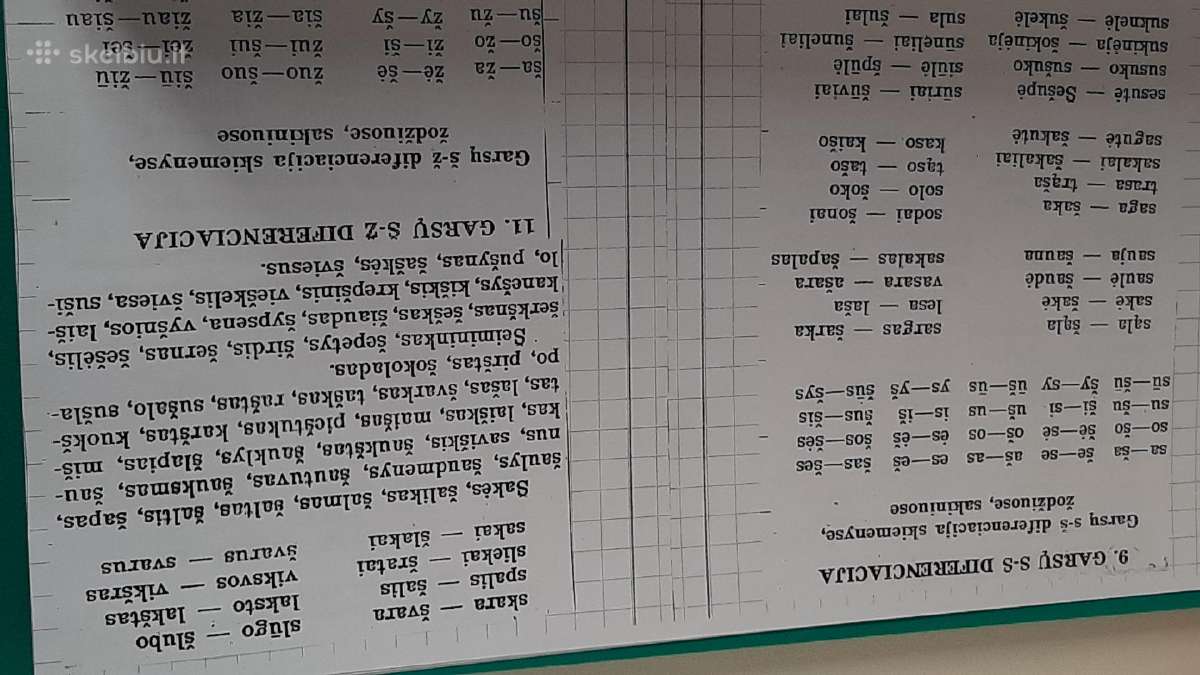 9. GARSŲ S-Š DIFERENCIACIJA
Garsų s-š diferenciacija skiemenyse,
žodžiuose, sakiniuose
sa—ša še—se aš—as es—eš šas—šes
so—šo šė—sė oš—os ės—ėš šos—šės
su—šu ši—si uš—us is—iš šus—šis
sū—šū šy—sy ūš—ūs ys—yš šūs—šys
sąla — šąla sargas — šarka
sakė — šakė lesa — laša
saulė — šaudė vasara — ašara
sauja — šauna sakalas — šapalas
saga — šaka sodai — šonai
trasa — trąša solo — šoko
sakalai — šakaliai tąso — tašo
sagutė — šakutė kaso — kaišo
sesutė — Šešupė sūriai — šūviai
susuko — sušuko siūlė — špūlė
sukinėja — šokinėja sūneliai — šuneliai
suknelė — šukelė sula — šulai
skara — švara slūgo — šlubo
spalis — šalis laksto — lakštas
sliekai — šratai viksvos — vikšras
sakai — šlakai švarus — svarus
Šakės, šalikas, šalmas, šaltas, šaltis, šapas,
šaulys, šaudmenys, šautuvas, šauksmas, šau-
nus, saviškis, šaukštas, šauklys, šlapias, miš-
kas, laiškas, maišas, pieštukas, karštas, kuokš-
tas, lašas, švarkas, taškas, raštas, sušalo, sušla-
po, pirštas, šokoladas.
Šeimininkas, šepetys, širdis, šernas, šešėlis,
šerkšnas, šeškas, šiaudas, šypsena, vyšnios, laiš-
kanešys, kiškis, krepšinis, vieškelis, šviesa, suši-
lo, pušynas, šaškės, šviesus.
11. GARSŲ Š-Ž DIFERENCIACIJA
Garsų š-ž diferenciacija skiemenyse,
žodžiuose, sakiniuose
ša—ža žė—šė žuo—šuo šiū—žiū
šo—žo ži—ši žui—šui žei—šei
šu—žu žy—šy šia—žia žiau—šiau
skelbiu.lt